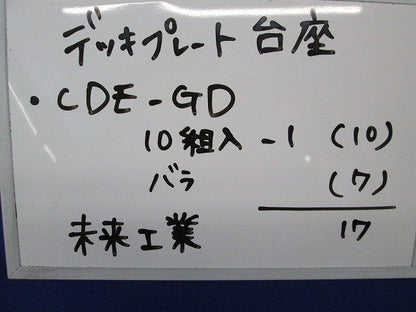 デッキプレート台座
・CDE-GD
10組入 -1 (10)
バラ (7)
17
未来工業